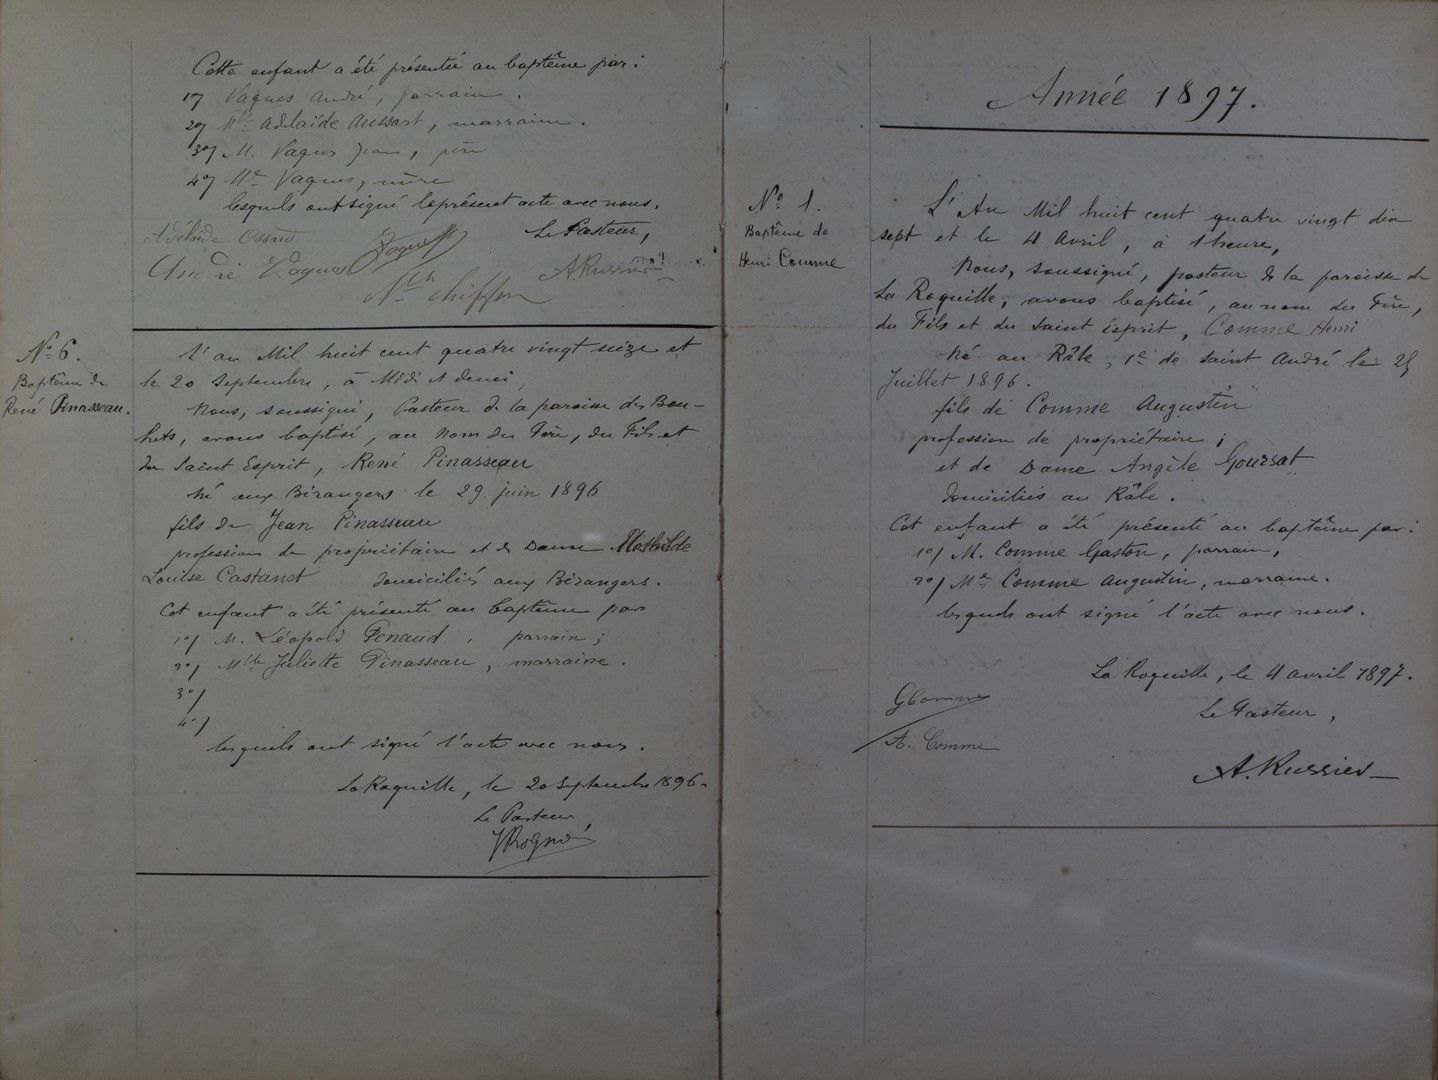 Cette enfant a été présentée au baptême par :
1°/ Vaques André, parrain.
2°/ Mlle Adélaïde Aussart, marraine.
3°/ M. Vaques Jean, père
4°/ Me Vaques, mère
lesquels ont signé le présent acte avec nous.
Le Pasteur,
Adélaïde Ossard
André Vaques
A Russier
N° 6.
Baptême de
René Pinasseau.
L'an Mil huit cent quatre vingt seize et
le 20 Septembre, à Midi et demi,
Nous, soussigné, Pasteur de la paroisse des Bou-
hets, avons baptisé, au nom du Père, du Fils et
du Saint Esprit, René Pinasseau
né aux Bérangers le 29 juin 1896
fils de Jean Pinasseau
profession de propriétaire et de Dame Mathilde
Louise Castanet domiciliés aux Bérangers.
Cet enfant a été présenté au baptême par
1°/ M. Léopold Penaud, parrain ;
2°/ Mlle Juliette Pinasseau, marraine.
3°/
4°/
lesquels ont signé l'acte avec nous.
La Roquille, le 20 Septembre 1896.
Le Pasteur,
Année 1897.
N° 1.
Baptême de
Henri Comme
L'An Mil huit cent quatre vingt dix
sept et le 4 Avril, à 1 heure,
Nous, soussigné, pasteur de la paroisse de
La Roquille, avons baptisé, au nom du Père,
du Fils et du Saint Esprit, Comme Henri
Né au Râle, Ce de Saint André le 25
Juillet 1896.
fils de Comme Augustin
profession de propriétaire ;
et de Dame Angèle Goursat
domiciliés au Râle.
Cet enfant a été présenté au baptême par :
1°/ M. Comme Gaston, parrain,
2°/ Me Comme Augustin, marraine.
lesquels ont signé l'acte avec nous.
La Roquille, le 4 avril 1897.
G Comme
Le Pasteur,
A. Comme
A. Russier